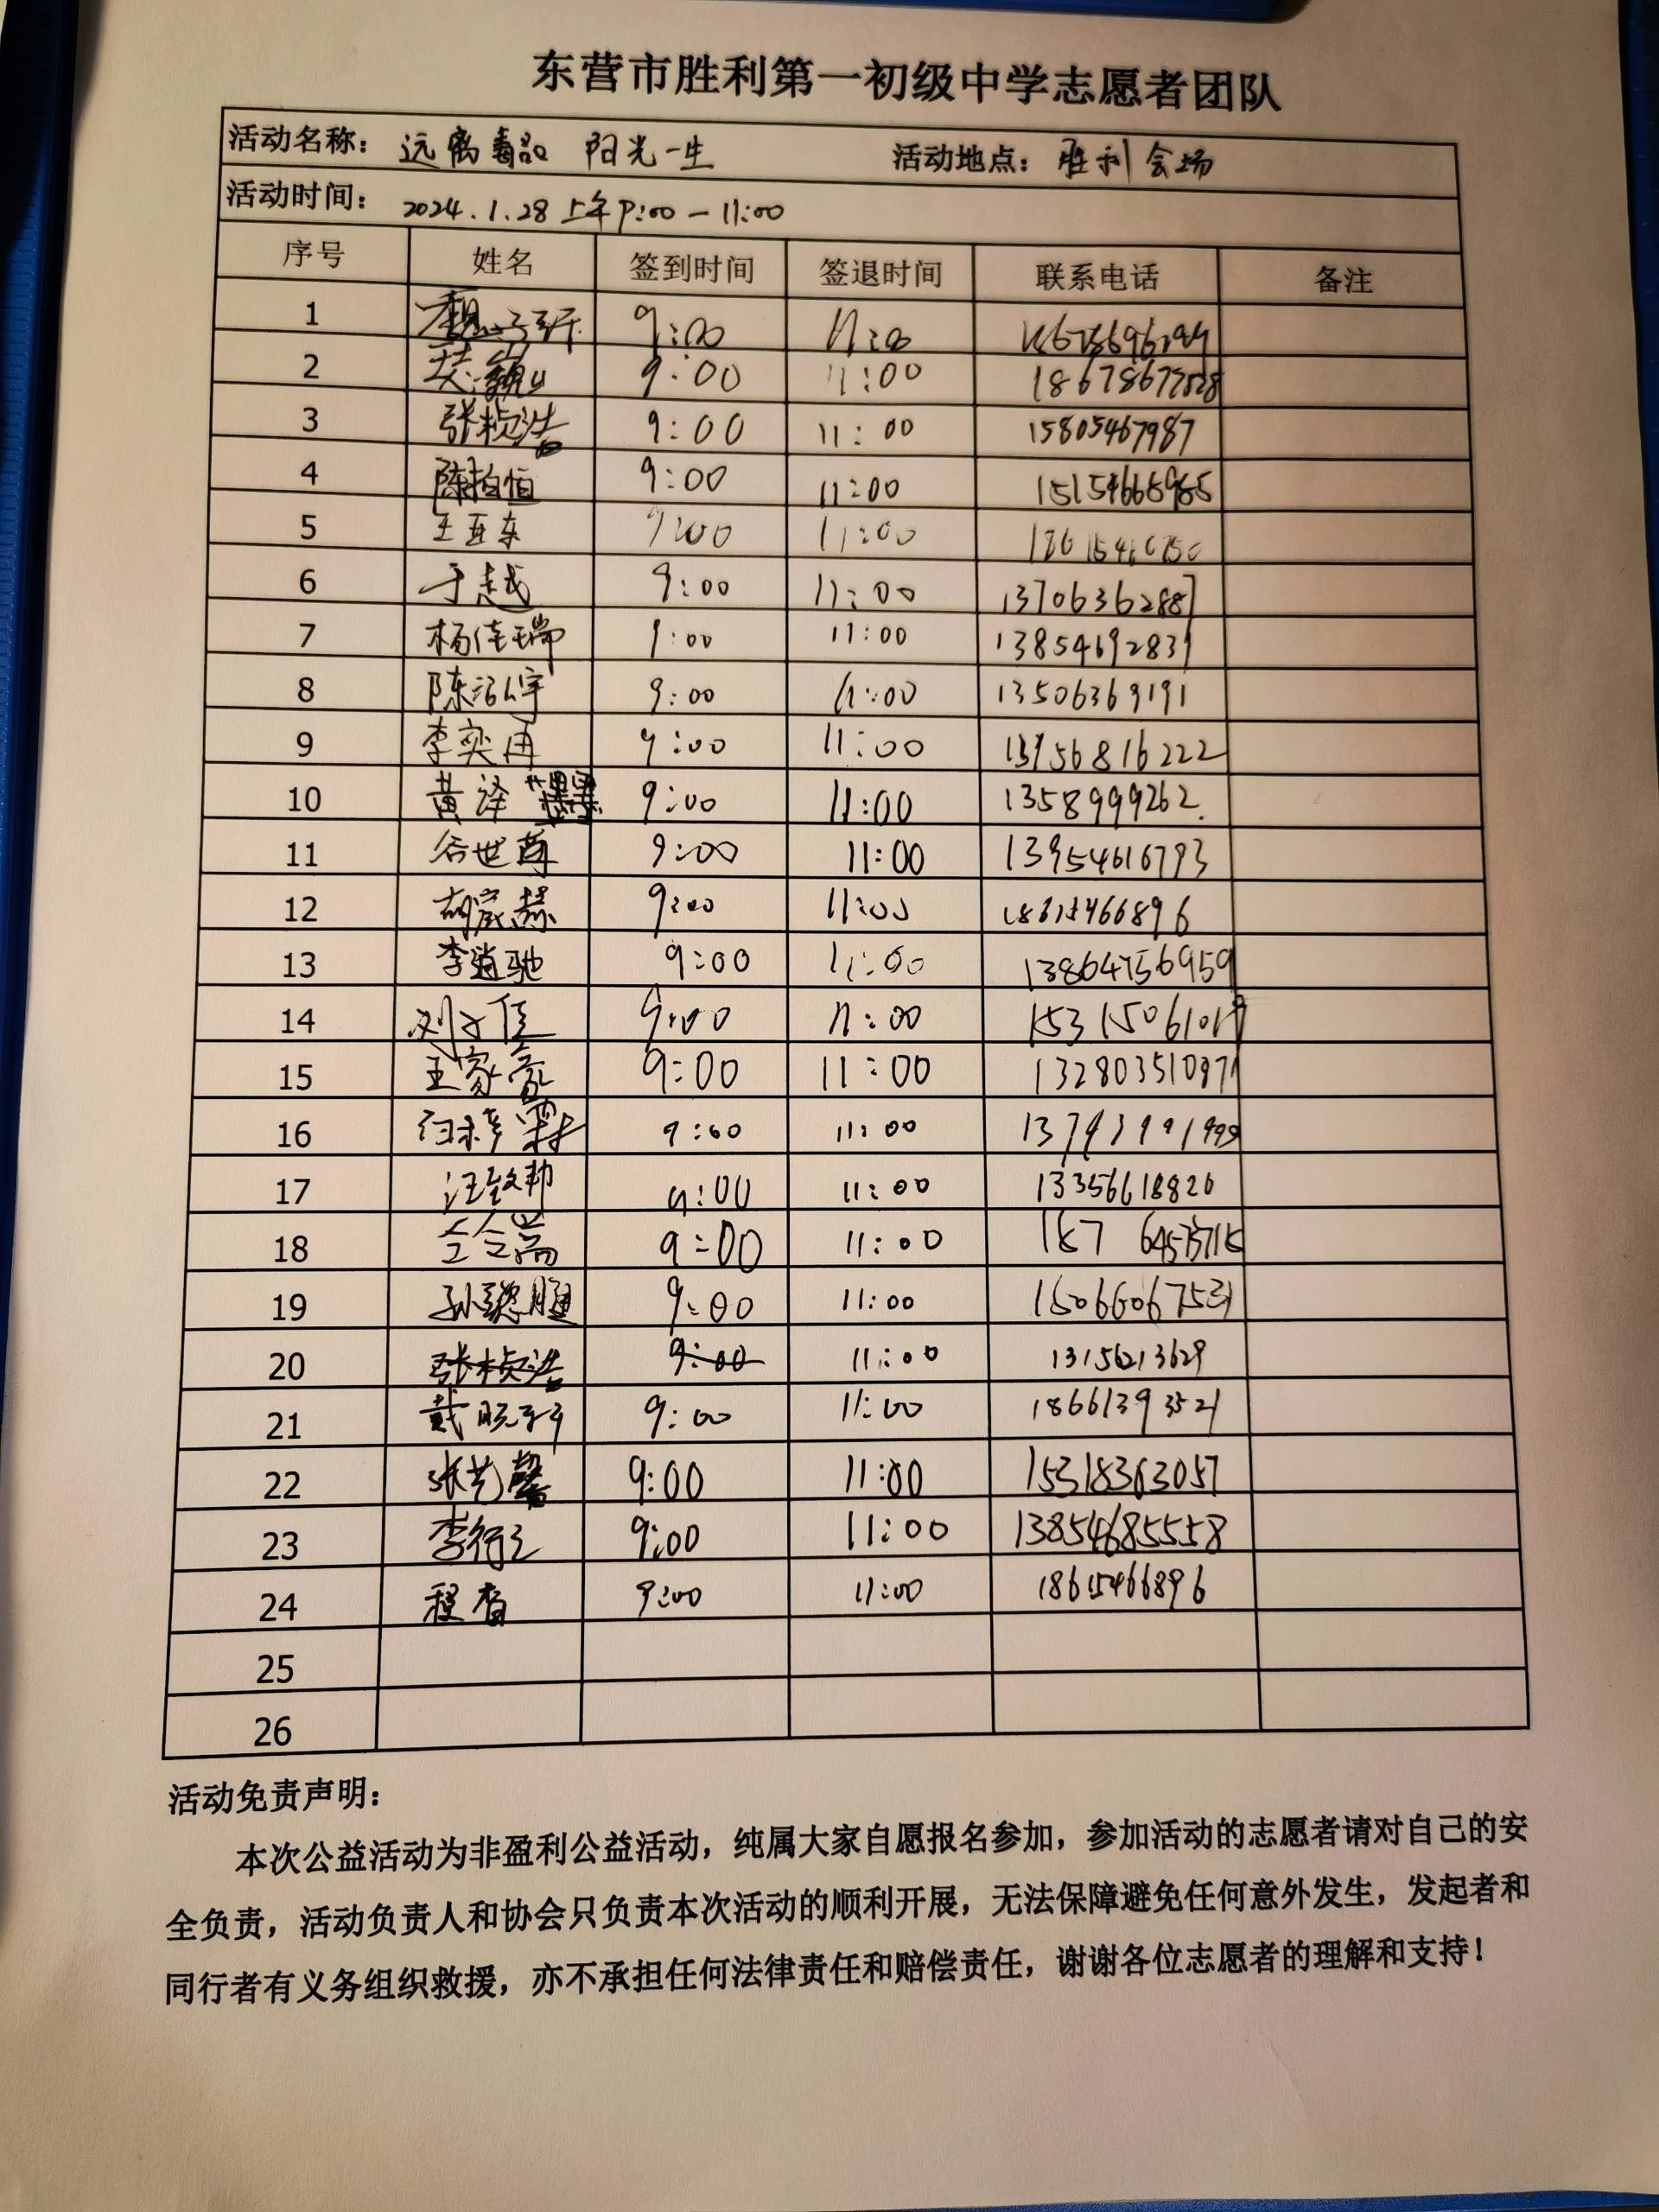 东营市胜利第一初级中学志愿者团队
活动名称： 远离毒品 阳光一生 活动地点： 胜利会场
活动时间： 2024.1.28 上午9:00-11:00
序号 姓名 签到时间 签退时间 联系电话 备注
1 9:00 11:00
2 9:00 11:00
3 张桢浩 9:00 11:00 15805467987
4 陈柏恒 9:00 11:00 15154666985
5 王亚东 9:00 11:00
6 于越 9:00 11:00 13706362887
7 杨佳瑞 9:00 11:00 13854692831
8 陈泓宇 9:00 11:00 13506369191
9 李奕再 9:00 11:00
10 黄泽 9:00 11:00 1358999262.
11 谷世尊 9:00 11:00 13954616793
12 9:00 11:00
13 李逍驰 9:00 11:00 13864756959
14 9:00 11:00
15 王家豪 9:00 11:00
16 9:00 11:00
17 汪致邦 9:00 11:00 13356618826
18 9:00 11:00
19 9:00 11:00 15066067531
20 张桢浩 9:00 11:00 13156213629
21 9:00 11:00 18661393521
22 张艺馨 9:00 11:00 15318363057
23 李行之 9:00 11:00 13854685558
24 程睿 9:00 11:00 18615466896
25
26
活动免责声明：
本次公益活动为非盈利公益活动，纯属大家自愿报名参加，参加活动的志愿者请对自己的安
全负责，活动负责人和协会只负责本次活动的顺利开展，无法保障避免任何意外发生，发起者和
同行者有义务组织救援，亦不承担任何法律责任和赔偿责任，谢谢各位志愿者的理解和支持！